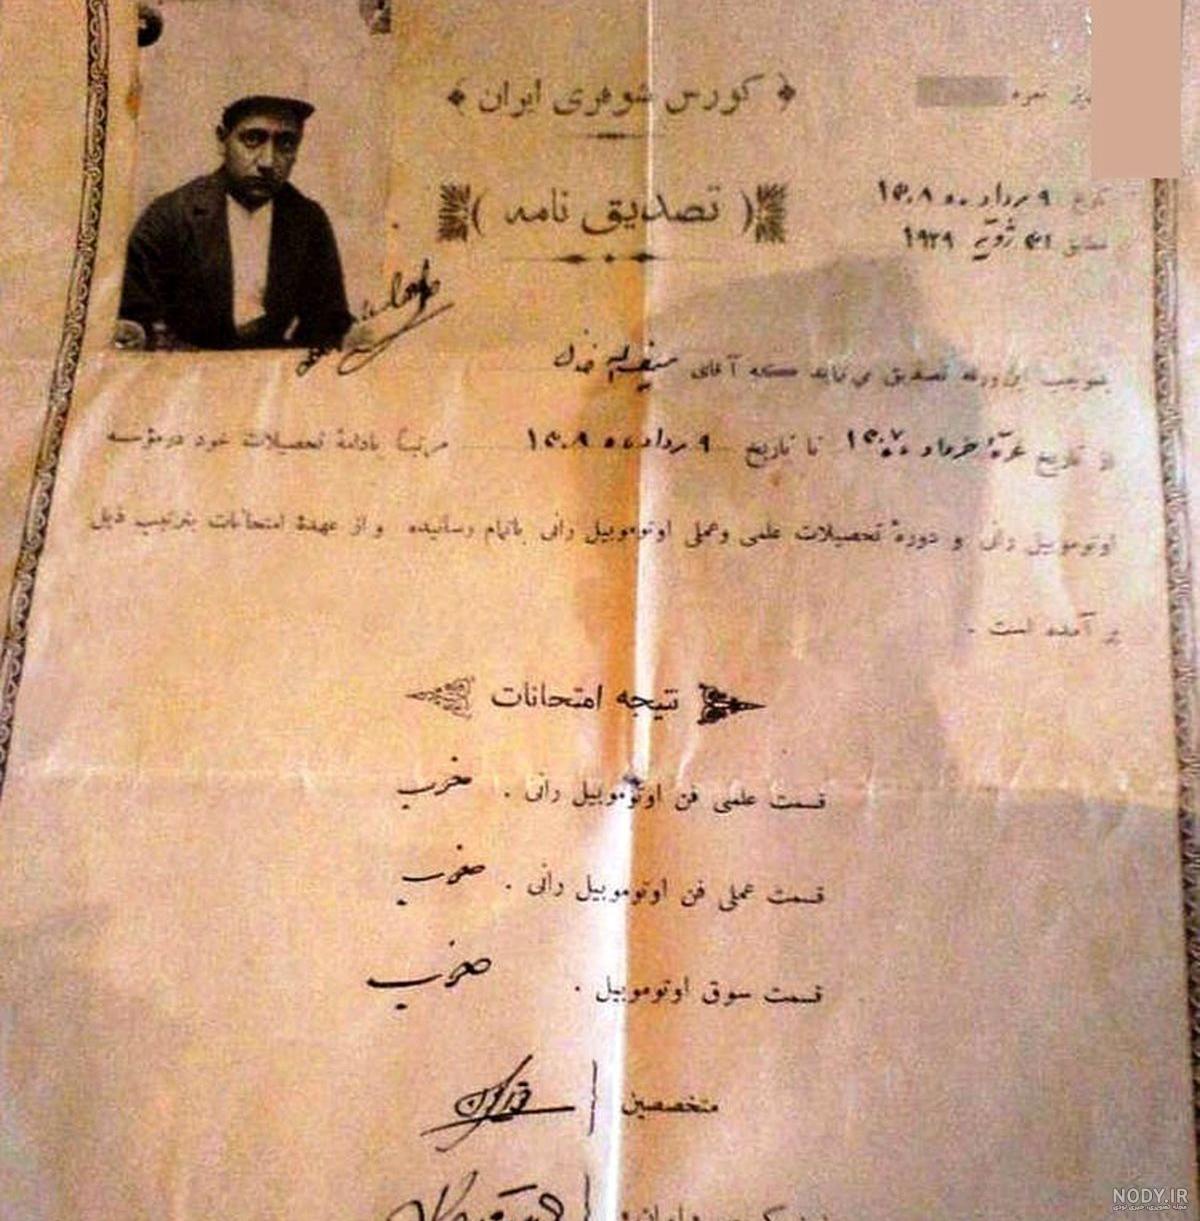 کورس شوفری ایران
نمره
تصدیق نامه
تاریخ ۹ مرداد ماه ۱۳۰۸
مطابق ۳۱ ژویه ۱۹۲۹
بموجب این ورقه تصدیق می نماید که آقای
از تاریخ غرهٔ خرداد ماه ۱۳۰۷ تا تاریخ ۹ مرداد ماه ۱۳۰۸ مرتباً بادامهٔ تحصیلات خود در مؤسسه
اوتوموبیل رانی و دورهٔ تحصیلات علمی وعملی اوتوموبیل رانی باتمام رسانیده و از عهدهٔ امتحانات بترتیب ذیل
بر آمده است .
نتیجه امتحانات
قسمت علمی فن اوتوموبیل رانی . خوب
قسمت عملی فن اوتوموبیل رانی . خوب
قسمت سوق اوتوموبیل . خوب
متخصصین
NODY.IR